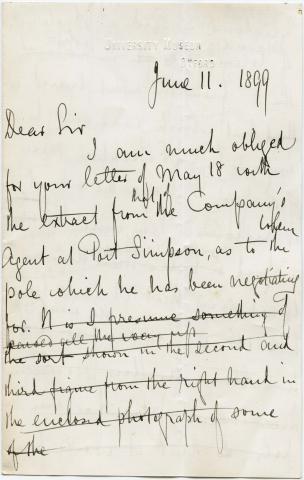 UNIVERSITY MUSEUM
OXFORD
June 11. 1899
Dear Sir
I am much obliged
for your letter of May 18 with
that of
the extract from the Company's
when
Agent at Port Simpson, as to the
pole which he has been negotiating
for. It is I presume something of
raised all the way up
the sort shown in the second and
third frame from the right hand in
the enclosed photograph of some
of the